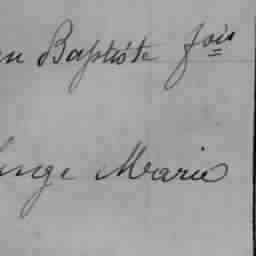 en Baptiste fois
ange Marie